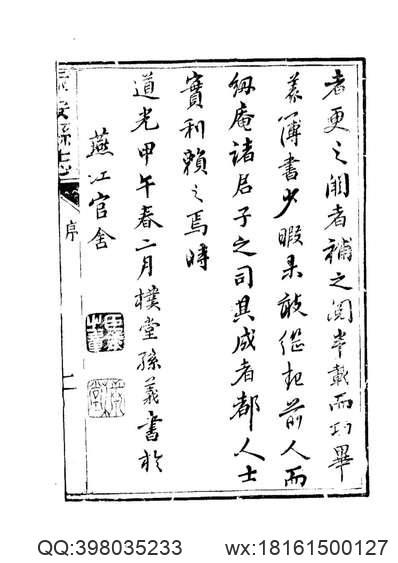 者更之闕者補之閱半載而功畢
義簿書少暇敢前人而
紉庵諸君子之司其成者都人士
實利賴之焉時
道光甲午春二月樸堂孫義書於
燕江官舍
永安縣志
序
QQ:398035233 wx:18161500127